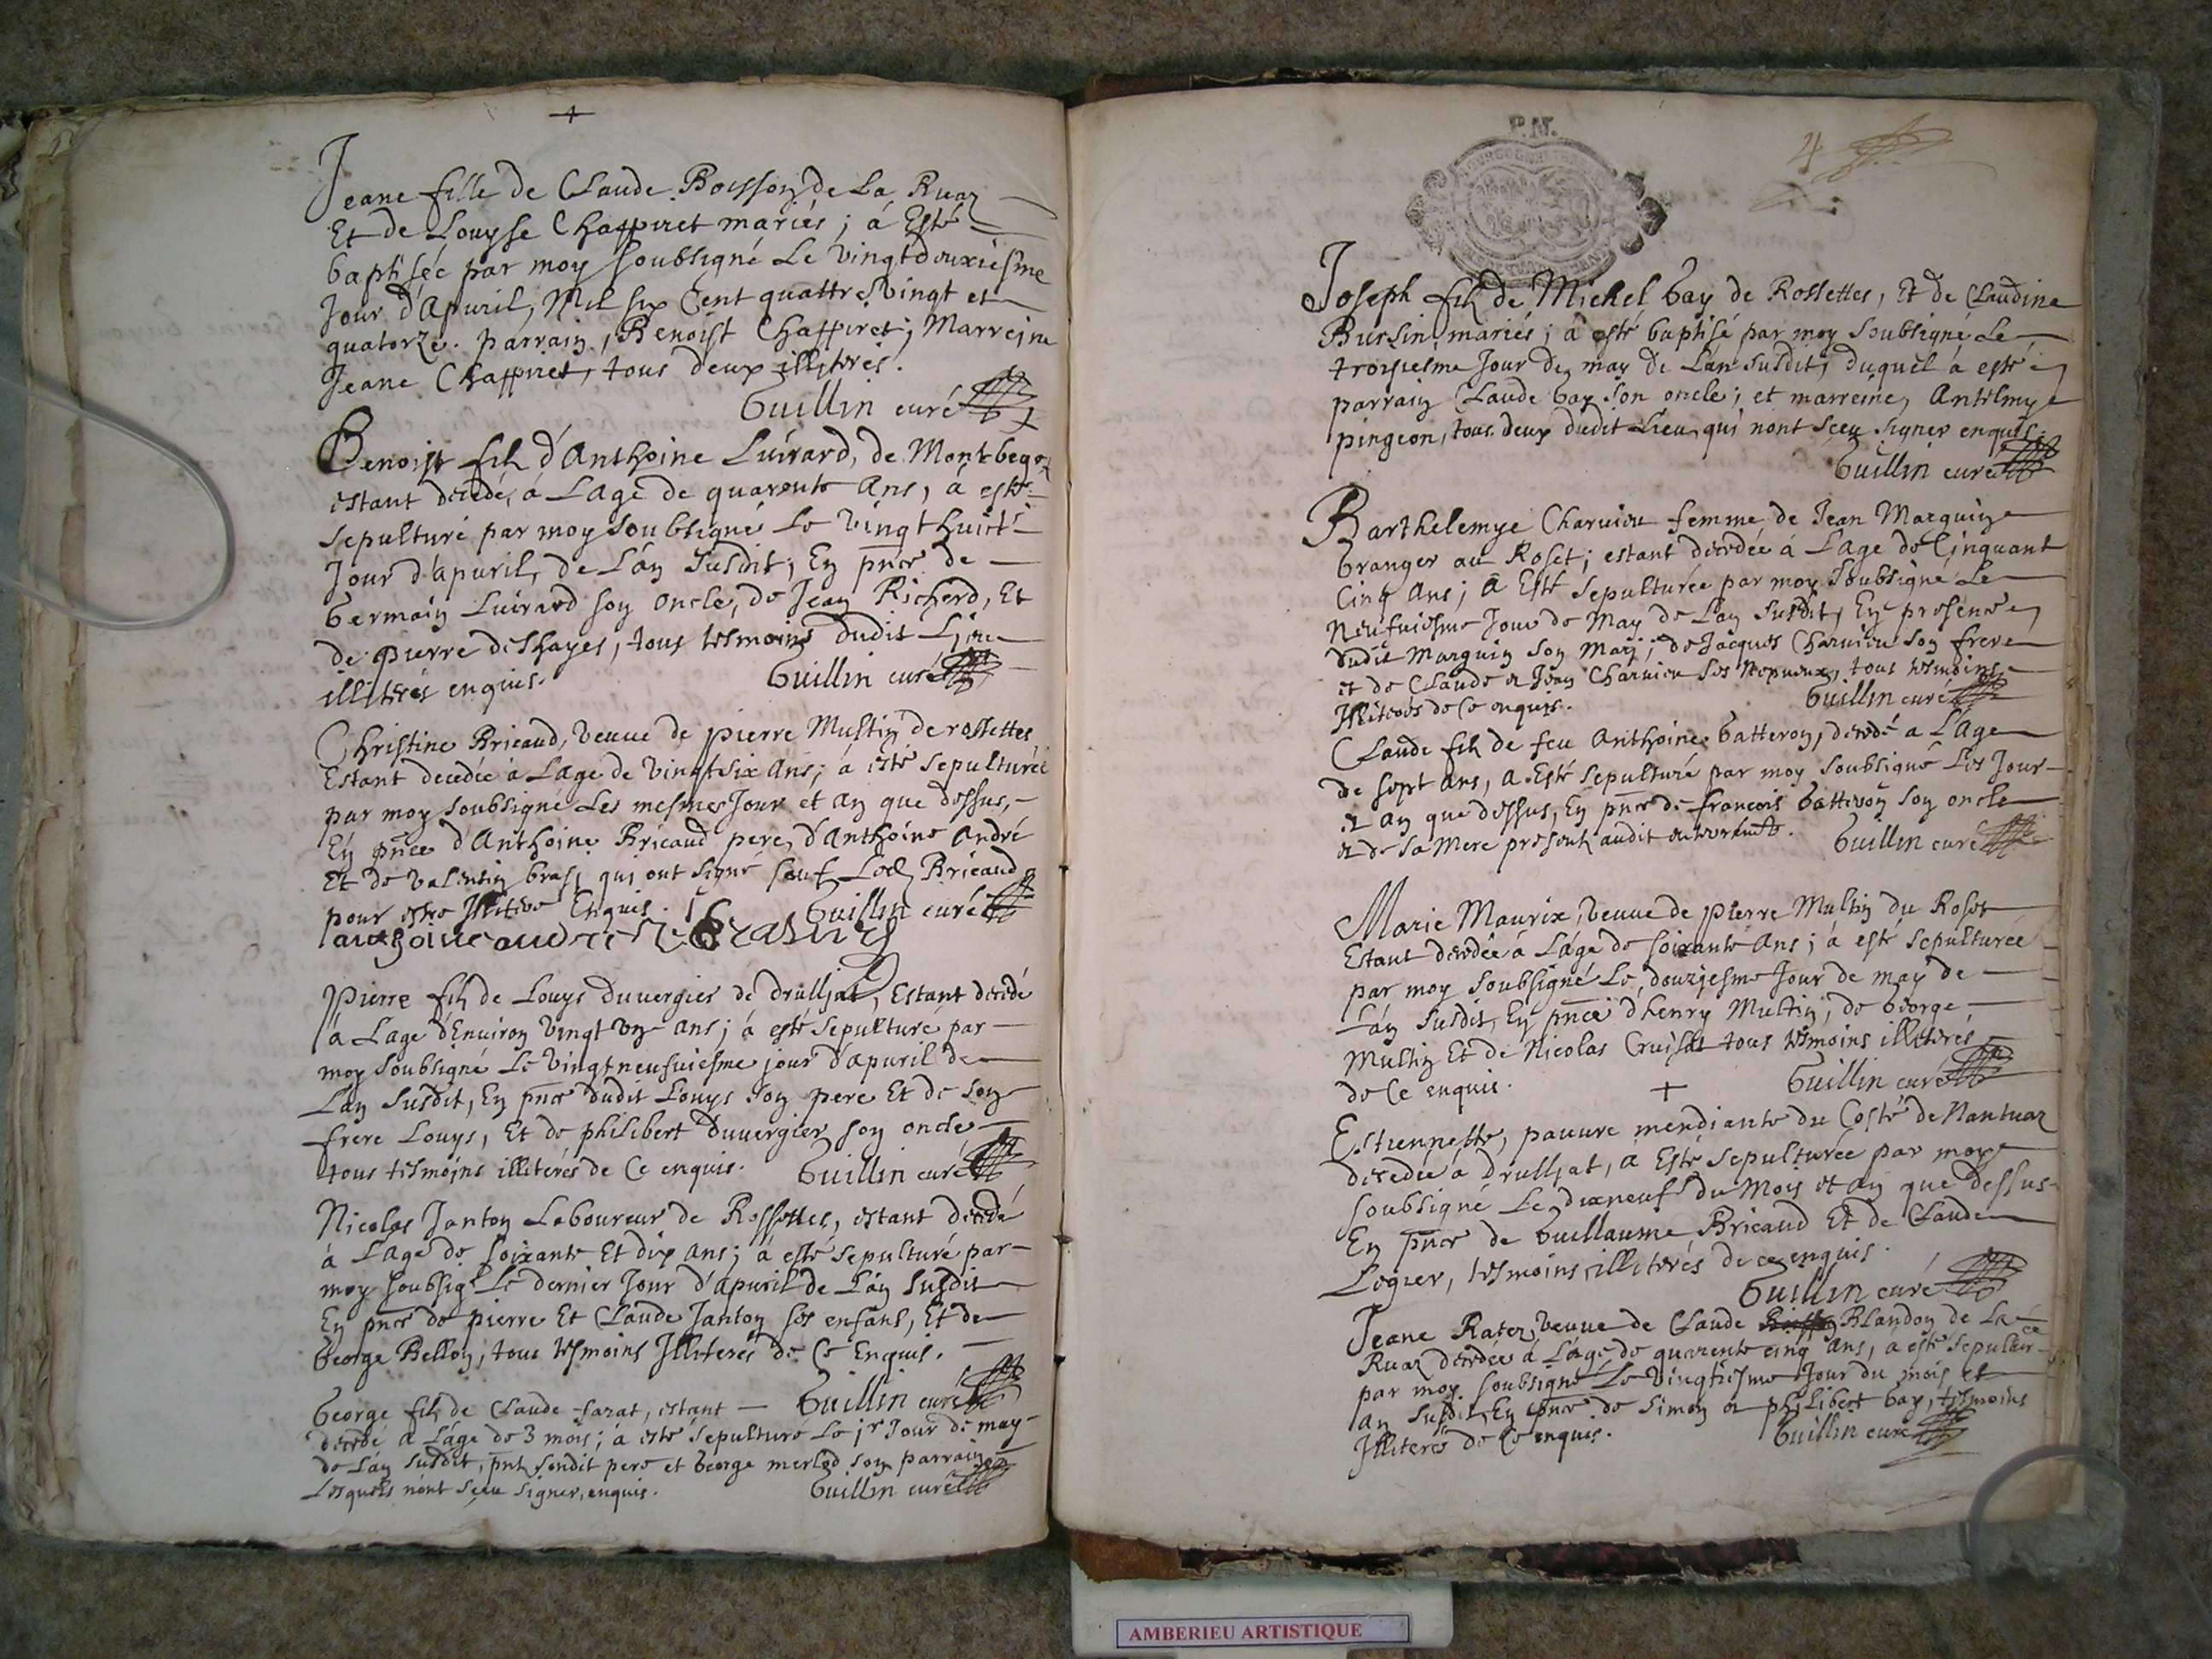 +
Jeane fille de Claude Boisson de La Ruaz
Et de Louyse Chappuet mariés ; á Esté
baptisée par moy soubsigné Le vingtdeuxiesme
Jour d'Apuril, Mil six Cent quattre Vingt et
quatorze. parrain, Benoist Chappuet ; Marreine
Jeane Chappuet, tous deux illiterés.
Guillin curé
Benoist fils d'Anthoine Luirard, de Montbegoz
estant decedé, á Lage de quarente Ans, á esté
sepulturé par moy soubsigné Le Vingt huict
Jour d'apuril, de L'an susdit ; En pnce de
Germain Luirard son oncle, de Jean Richerd, Et
de pierre deshayes, tous tesmoins dudit Lieu
illiterés enquis. Guillin curé
Christine Bricaud, veuue de pierre Mustin de rossettes
Estant decedée á Lage de vingt six Ans ; á esté sepulturée
par moy soubsigné Les mesmes Jour et an que dessus,
En pnce d'Anthoine Bricaud pere, d'Anthoine André
Et de valentin bras, qui ont signé sauf Led Bricaud
pour estre Illiteré Enquis. Guillin curé
anthoine andre
Pierre fils de Louys duuergier de drulliat, Estant decedé
á Lage d'Enuiron vingt un ans ; á esté sepulturé par
moy soubsigné Le vingtneufuiesme jour d'apuril de
Lan susdit, En pnce dudit Louys son pere Et de son
frere Louys, Et de philibert duuergier son oncle
tous tesmoins illiterés de Ce enquis. Guillin curé
Nicolas Janton Laboureur de Rossettes, estant decedé
á Lage de soixante Et dix ans ; á esté sepulturé par
moy soubsigé Le dernier Jour d'apuril de L'an susdit
En pnce de pierre Et Claude Janton ses enfans, Et de
George Bellon, tous tesmoins Illiterés de Ce Enquis.
George fils de Claude sarat, estant Guillin curé
decedé a Láge de 3 mois ; á esté sepulturé Le jr Jour de may
de Lan susdit, pnt sondit pere et George merlod son parrain
Lesquels n'ont sceu signer, enquis. Guillin curé
P.N.
4
Joseph fils de Michel Gay de Rossettes, Et de Claudine
Bursin mariés ; á esté baptisé par moy soubsigné Le
troisiesme Jour de may de L'an susdit, duquel á esté
parrain Claude Gay son oncle ; et marreine, Antelmye
pingeon, tous deux dudit Lieu qui nont sceu signer enquis.
Guillin curé
Barthelemye Charuieu femme de Jean Marguin
Granger au Roset ; estant decedée á L'age de Cinquant
Cinq Ans ; á Esté sepulturée par moy soubsigné Le
Neufuiesme Jour de May de Lan susdit, En presence
dudit Marguin son Mary ; de Jacques Charuieu son frere
et de Claude et Jean Charuieu ses Nepueux, tous tesmoins
Illiterés de Ce enquis. Guillin curé
Claude fils de feu Anthoine Gatteron, decedé a L'Age
de sept Ans, a Esté sepulturé par moy soubsigné Les Jour
et an que dessus, En pnce de francois Gatteron son oncle
et de sa Mere presents audit enterrement. Guillin curé
Marie Maurix, veuue de pierre Multin du Roset
Estant decedée á Láge de soixante Ans ; á esté sepulturée
par moy soubsigné Le, douziesme Jour de may de
Lan susdit, En pnce d'henry Multin, de George
Multin Et de Nicolas Cruisat tous tesmoins illiterés
de Ce enquis. + Guillin curé
Estiennette, pauure mendiante du Costé de Nantuaz
decedée á Drulliat, á Esté sepulturée par moy
soubsigné Le dixneuf du Mois et an que dessus
En pnce de Guillaume Bricaud Et de Claude
Logier, tesmoins illiterés de ce enquis.
Guillin curé
Jeane Ratez, veuue de Claude Blandon de La
Ruaz decedée á Láge de quarente cinq Ans, á esté sepulturée
par moy soubsigné Le Vingtiesme Jour du mois et
an susdit, En pnce de Simon et philibert Gay, tesmoins
Illiterés de Ce enquis. Guillin curé
AMBERIEU ARTISTIQUE